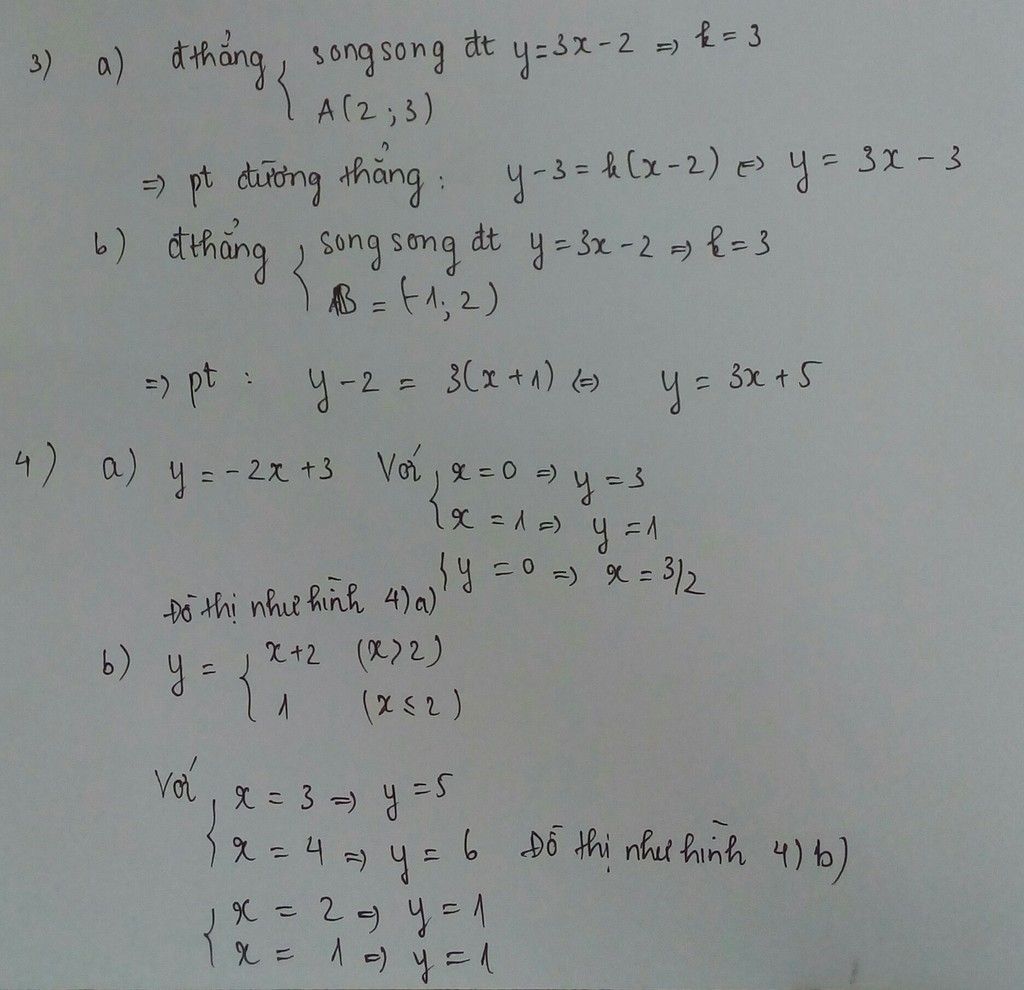 3) a) đthẳng { song song đt y = 3x - 2 => k = 3
A(2 ; 3)
=> pt đường thẳng : y - 3 = k(x - 2) <=> y = 3x - 3
b) đthẳng { song song đt y = 3x - 2 => k = 3
B = (-1; 2)
=> pt : y - 2 = 3(x + 1) <=> y = 3x + 5
4) a) y = -2x + 3 Với { x = 0 => y = 3
x = 1 => y = 1
{ y = 0 => x = 3/2
Đồ thị như hình 4)a)
b) y = { x + 2 (x > 2)
1 (x ≤ 2)
Với { x = 3 => y = 5
x = 4 => y = 6 Đồ thị như hình 4) b)
{ x = 2 => y = 1
x = 1 => y = 1